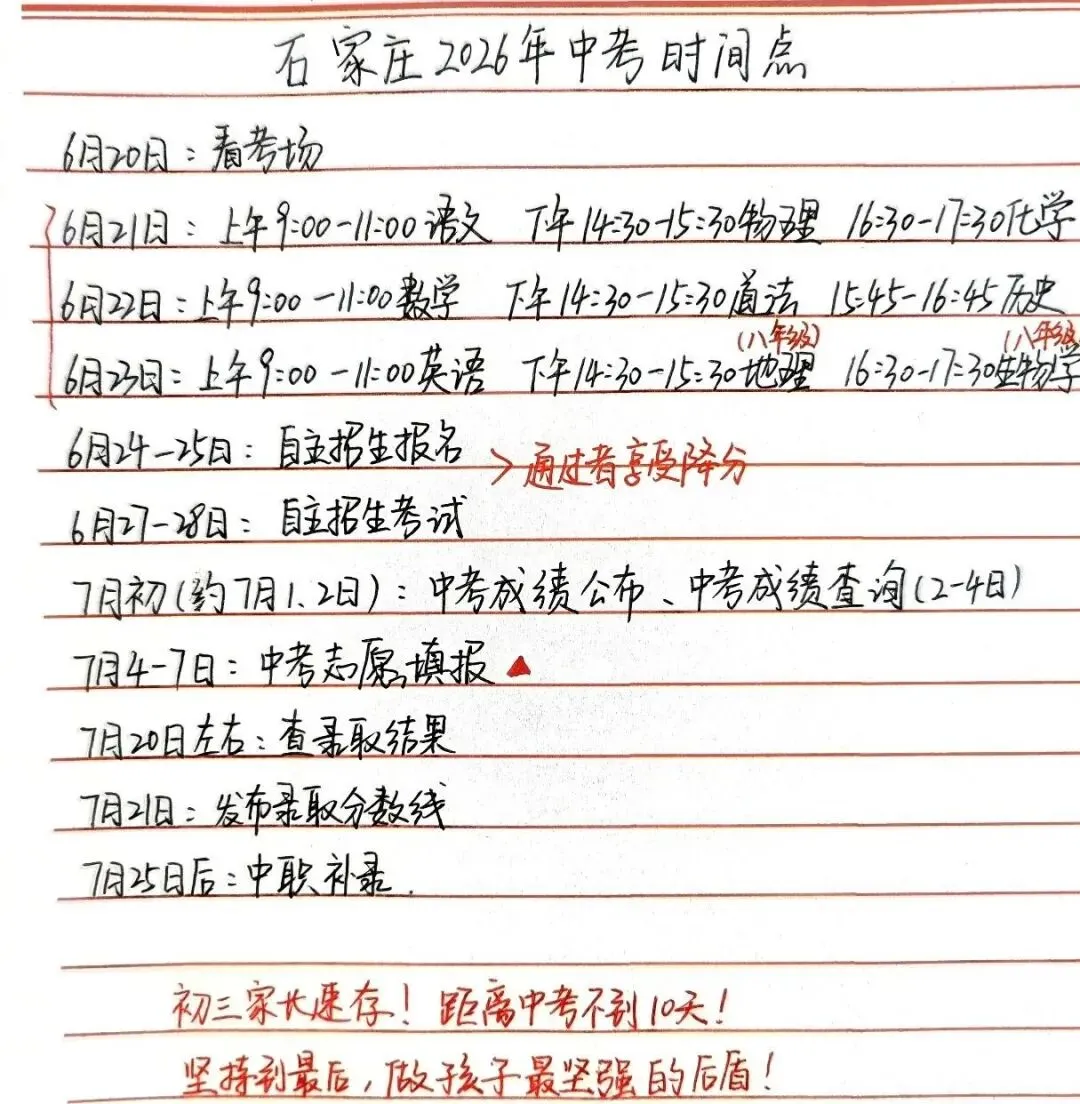 石家庄2026年中考时间点
6月20日：看考场
6月21日：上午9:00-11:00语文 下午14:30-15:30物理 16:30-17:30化学
6月22日：上午9:00-11:00数学 下午14:30-15:30道法 15:45-16:45历史
(八年级) (八年级
6月23日：上午9:00-11:00英语 下午14:30-15:30地理 16:30-17:30生物学
6月24-25日：自主招生报名
>通过者享受降分
6月27-28日：自主招生考试
7月初(约7月1、2日)：中考成绩公布、中考成绩查询(2-4日)
7月4-7日：中考志愿填报
7月20日左右：查录取结果
7月21日：发布录取分数线
7月25日后：中职补录.
初三家长速存！距离中考不到10天！
坚持到最后，做孩子最坚强的后盾！